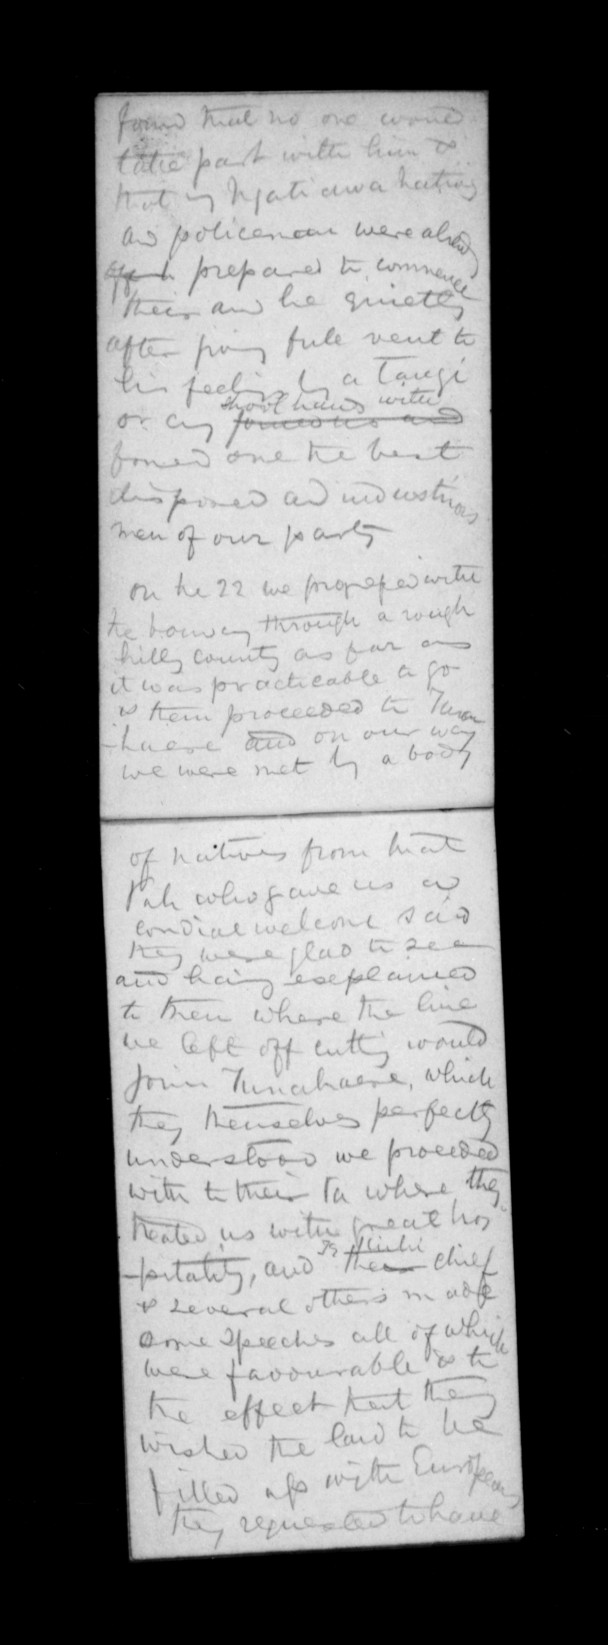 found that no one would
take part with him &
that my Ngatiawa natives
and policeman were already
prepared to commence
their and he quietly
after giving full vent to
his feelings by a Tangi
or cry shook hands with
joined us and
formed one the best
disposed and industrious
men of our party
on the 22 we progressed with
the boundary through a rough
hilly country as far as
it was practicable to go
& then proceeded to Tuna
-haere and on our way
we were met by a body
of natives from that
Pah who gave us a
cordial welcome said
they were glad to see
and having explained
to them where the line
we left off cutting would
join Tunahaere, which
they themselves perfectly
understood we proceeded
with to their Pa where they
treated us with great hos
-pitality, and their chief
& several others made
some speeches all of which
were favourable & to
the effect that they
wished the land to be
filled up with Europeans
they requested to have